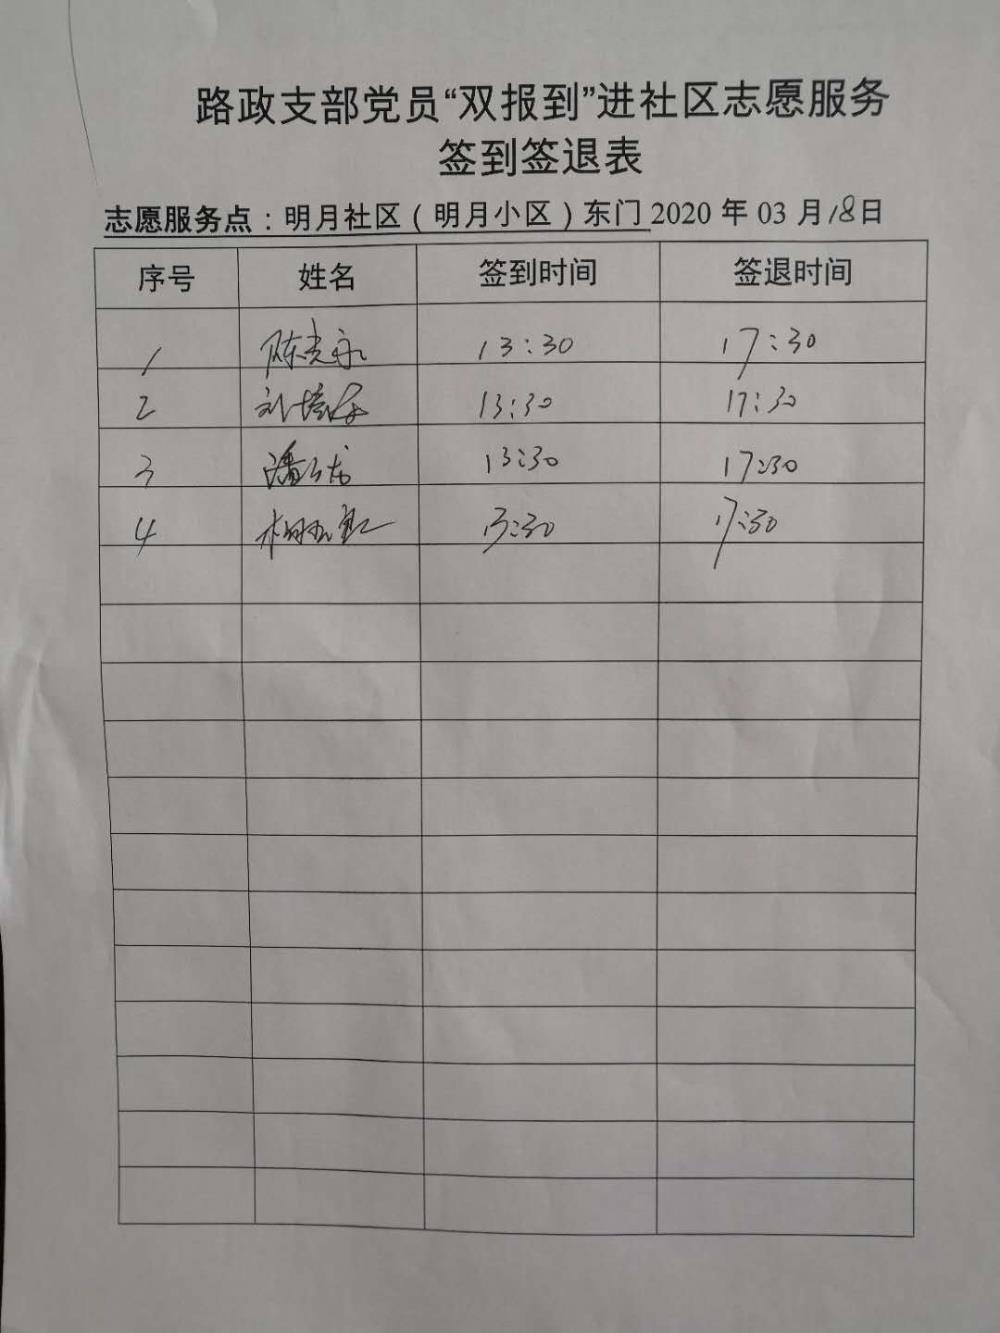 路政支部党员“双报到”进社区志愿服务
签到签退表
志愿服务点：明月社区（明月小区）东门 2020 年 03 月18日
序号 姓名 签到时间 签退时间
1 陈光永 13:30 17:30
2 13:30 17:30
3 13:30 17:30
4 13:30 17:30